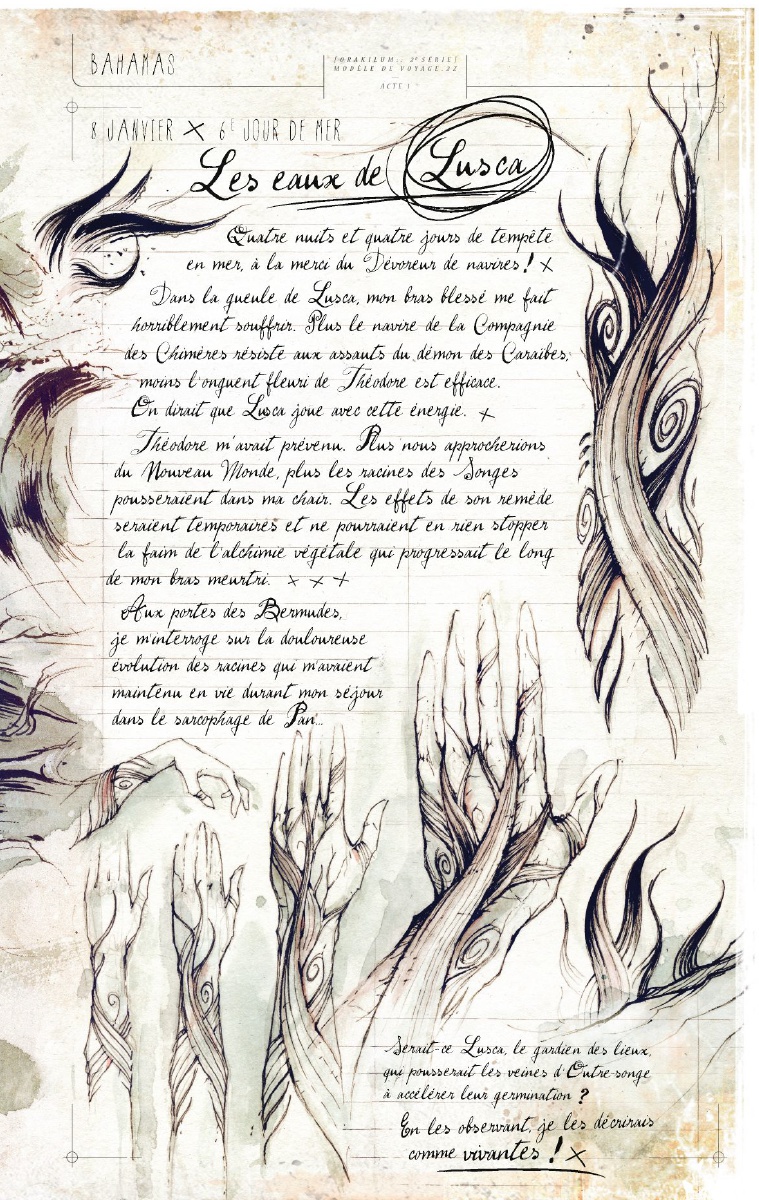 BAHAMAS
[ORAKILUM:. 2E SÉRIE]
MODÈLE DE VOYAGE.22
ACTE I
8 JANVIER X 6E JOUR DE MER
Les eaux de Lusca
Quatre nuits et quatre jours de tempête
en mer, à la merci du Dévoreur de navires ! X
Dans la gueule de Lusca, mon bras blessé me fait
horriblement souffrir. Plus le navire de la Compagnie
des Chimères résiste aux assauts du démon des Caraïbes,
moins l'onguent fleuri de Théodore est efficace.
On dirait que Lusca joue avec cette énergie. X
Théodore m'avait prévenu. Plus nous approcherions
du Nouveau Monde, plus les racines des Songes
pousseraient dans ma chair. Les effets de son remède
seraient temporaires et ne pourraient en rien stopper
la faim de l'alchimie végétale qui progressait le long
de mon bras meurtri. X X X
Aux portes des Bermudes,
je m'interroge sur la douloureuse
évolution des racines qui m'avaient
maintenu en vie durant mon séjour
dans le sarcophage de Pan...
Serait-ce Lusca, le gardien des lieux,
qui pousserait les veines d'Outre-songe
à accélérer leur germination ?
En les observant, je les décrirais
comme vivantes ! X